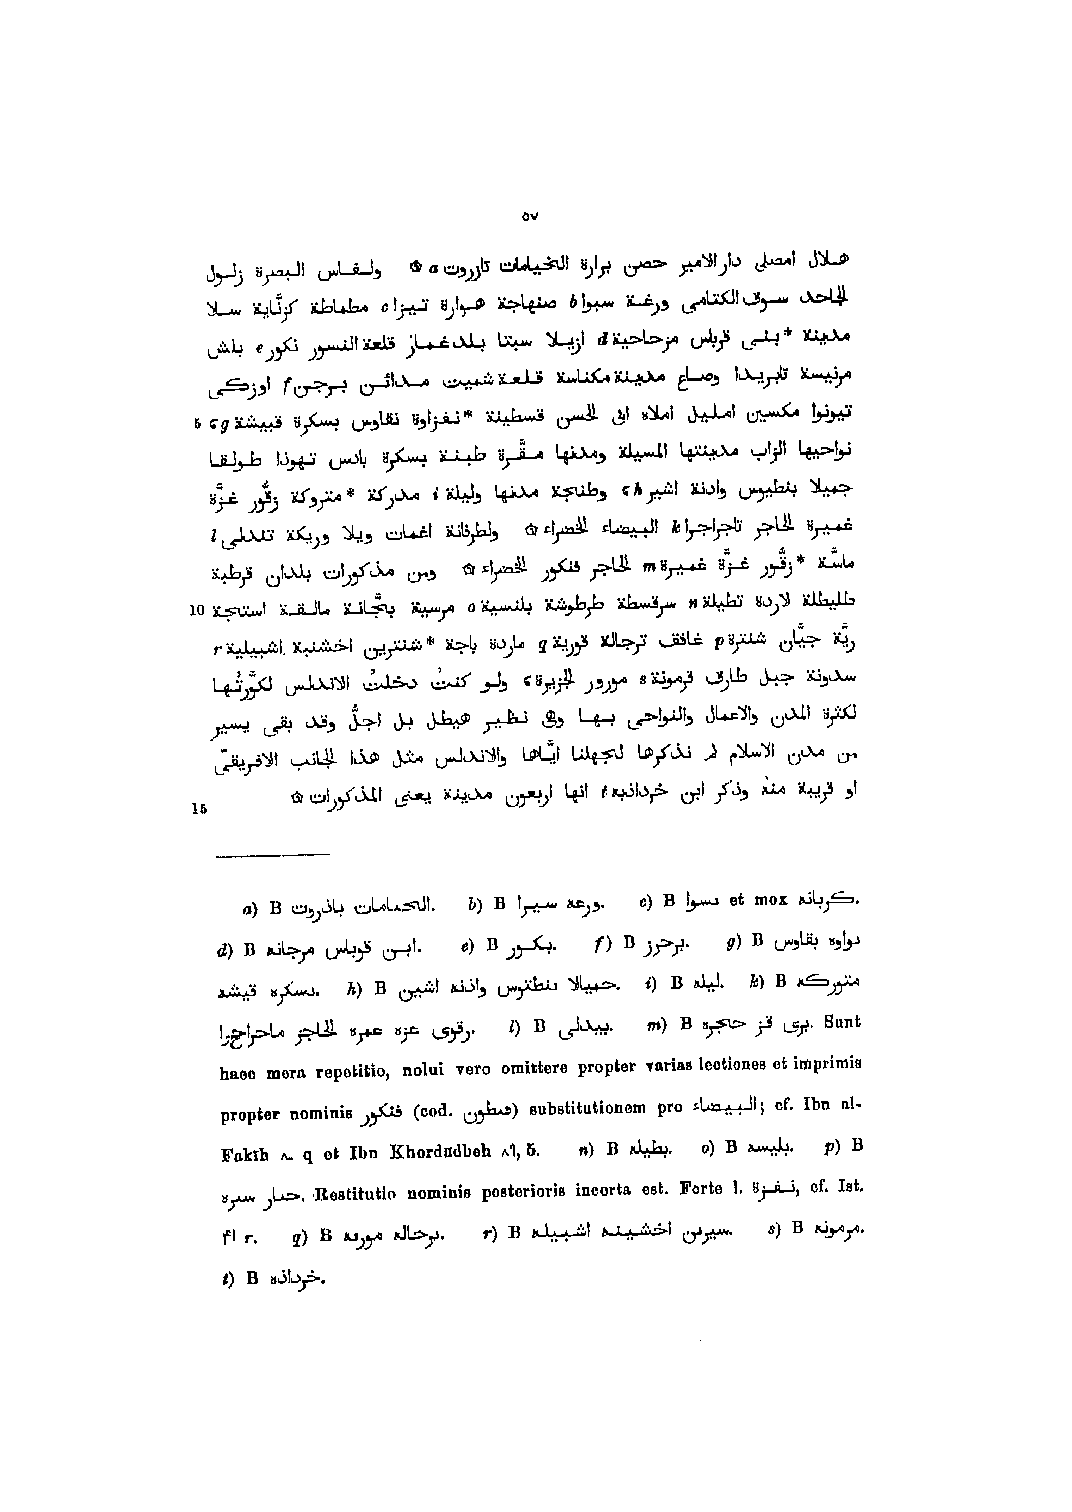 ٥٧
هلال امصلى دار الامير حصن برارة الخيامات تازروت a ۞ ولفاس البصرة زلول
الجاحد سوق الكتامى ورغة سبوا b صنهاجة هوارة تيزا c مطماطة كزنّاية سلا
مدينة *بنى قرباس مزحاحية d ازيلا سبتا بلد غمار قلعة النسور نكور e بلش
مرنيسة تابريدا وصاع مدينة مكناسة قلعة شميت مدائن برجن f اوزكى
تيونوا مكسين امليل املاه ابى الحسن قسطينة *نغزاوة نقاوس بسكرة قبيشة g ۞ 5
نواحيها الزاب مدينتها المسيلة ومدنها مقّرة طبنة بسكرة بادس تهوذا طولقا
جميلا بنطيوس وادنة اشير h ۞ وطنجة مدنها وليلة i مدركة *متروكة زقّور غزّة
غميرة الحاجر تاجراجرا k البيضاء الخضراء ۞ ولطرفانة اغمات ويلا وريكة تندلى l
ماسّة *زقّور غزّة غميرة m الحاجر فنكور الخضراء ۞ ومن مذكورات بلدان قرطبة
طليطلة لاردة تطيلة n سرقسطة طرطوشة بلنسية o مرسية بجّانة مالقة استجة 10
ريّة جيّان شنترة p غافق ترجالة قورية q ماردة باجة *شنترين اخشنبة اشبيلية r
سدونة جبل طارق قرمونة s مورور الجزيرة ۞ ولو كنتُ دخلتُ الاندلس لكوّرتُها
لكثرة المدن والاعمال والنواحى بها وهى نظير هيطل بل اجلّ وقد بقى يسير
من مدن الاسلام لم نذكرها لجهلنا ايّاها والاندلس مثل هذا الجانب الافريقىّ
او قريبة منه وذكر ابن خرداذبه t انها اربعون مدينة يعنى المذكورات ۞ 15
a) B الحمامات باذروت. b) B ورعه سيرا. c) B نسوا et mox كربانه.
d) B ابن قوباس مرجانه. e) B بكور. f) B برحرز. g) B نواوه بقاوس
بسكره قيشه. h) B حميالا بنطنوس واذنه اشين. i) B ليله. k) B متوركه
رقوى عزه عمره الحاجر ماحراجرا. l) B بيدلى. m) B برى قز حاجره. Sunt
haec mera repetitio, nolui vero omittere propter varias lectiones et imprimis
propter nominis فنكور (cod. فنطون) substitutionem pro البيضاء; cf. Ibn al-
Fakîh ٨. q et Ibn Khordadbeh ٨٦, 5. n) B بطيله. o) B بليسه. p) B
حيار سره. Restitutio nominis posterioris incerta est. Forte l. نفزة, cf. Ist.
٤١ r. q) B برحاله مورىه. r) B سيرين اخشينه اشبيله. s) B مرمونه.
t) B خرداذه.